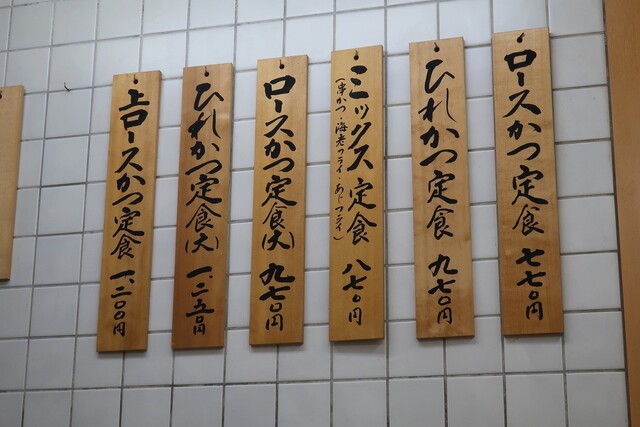 ロースかつ定食 七七〇円
ひれかつ定食 九七〇円
ミックス定食 八七〇円
(串かつ・海老フライ・あじフライ)
ロースかつ定食(大) 九七〇円
ひれかつ定食(大) 一、二五〇円
上ロースかつ定食 一、二〇〇円